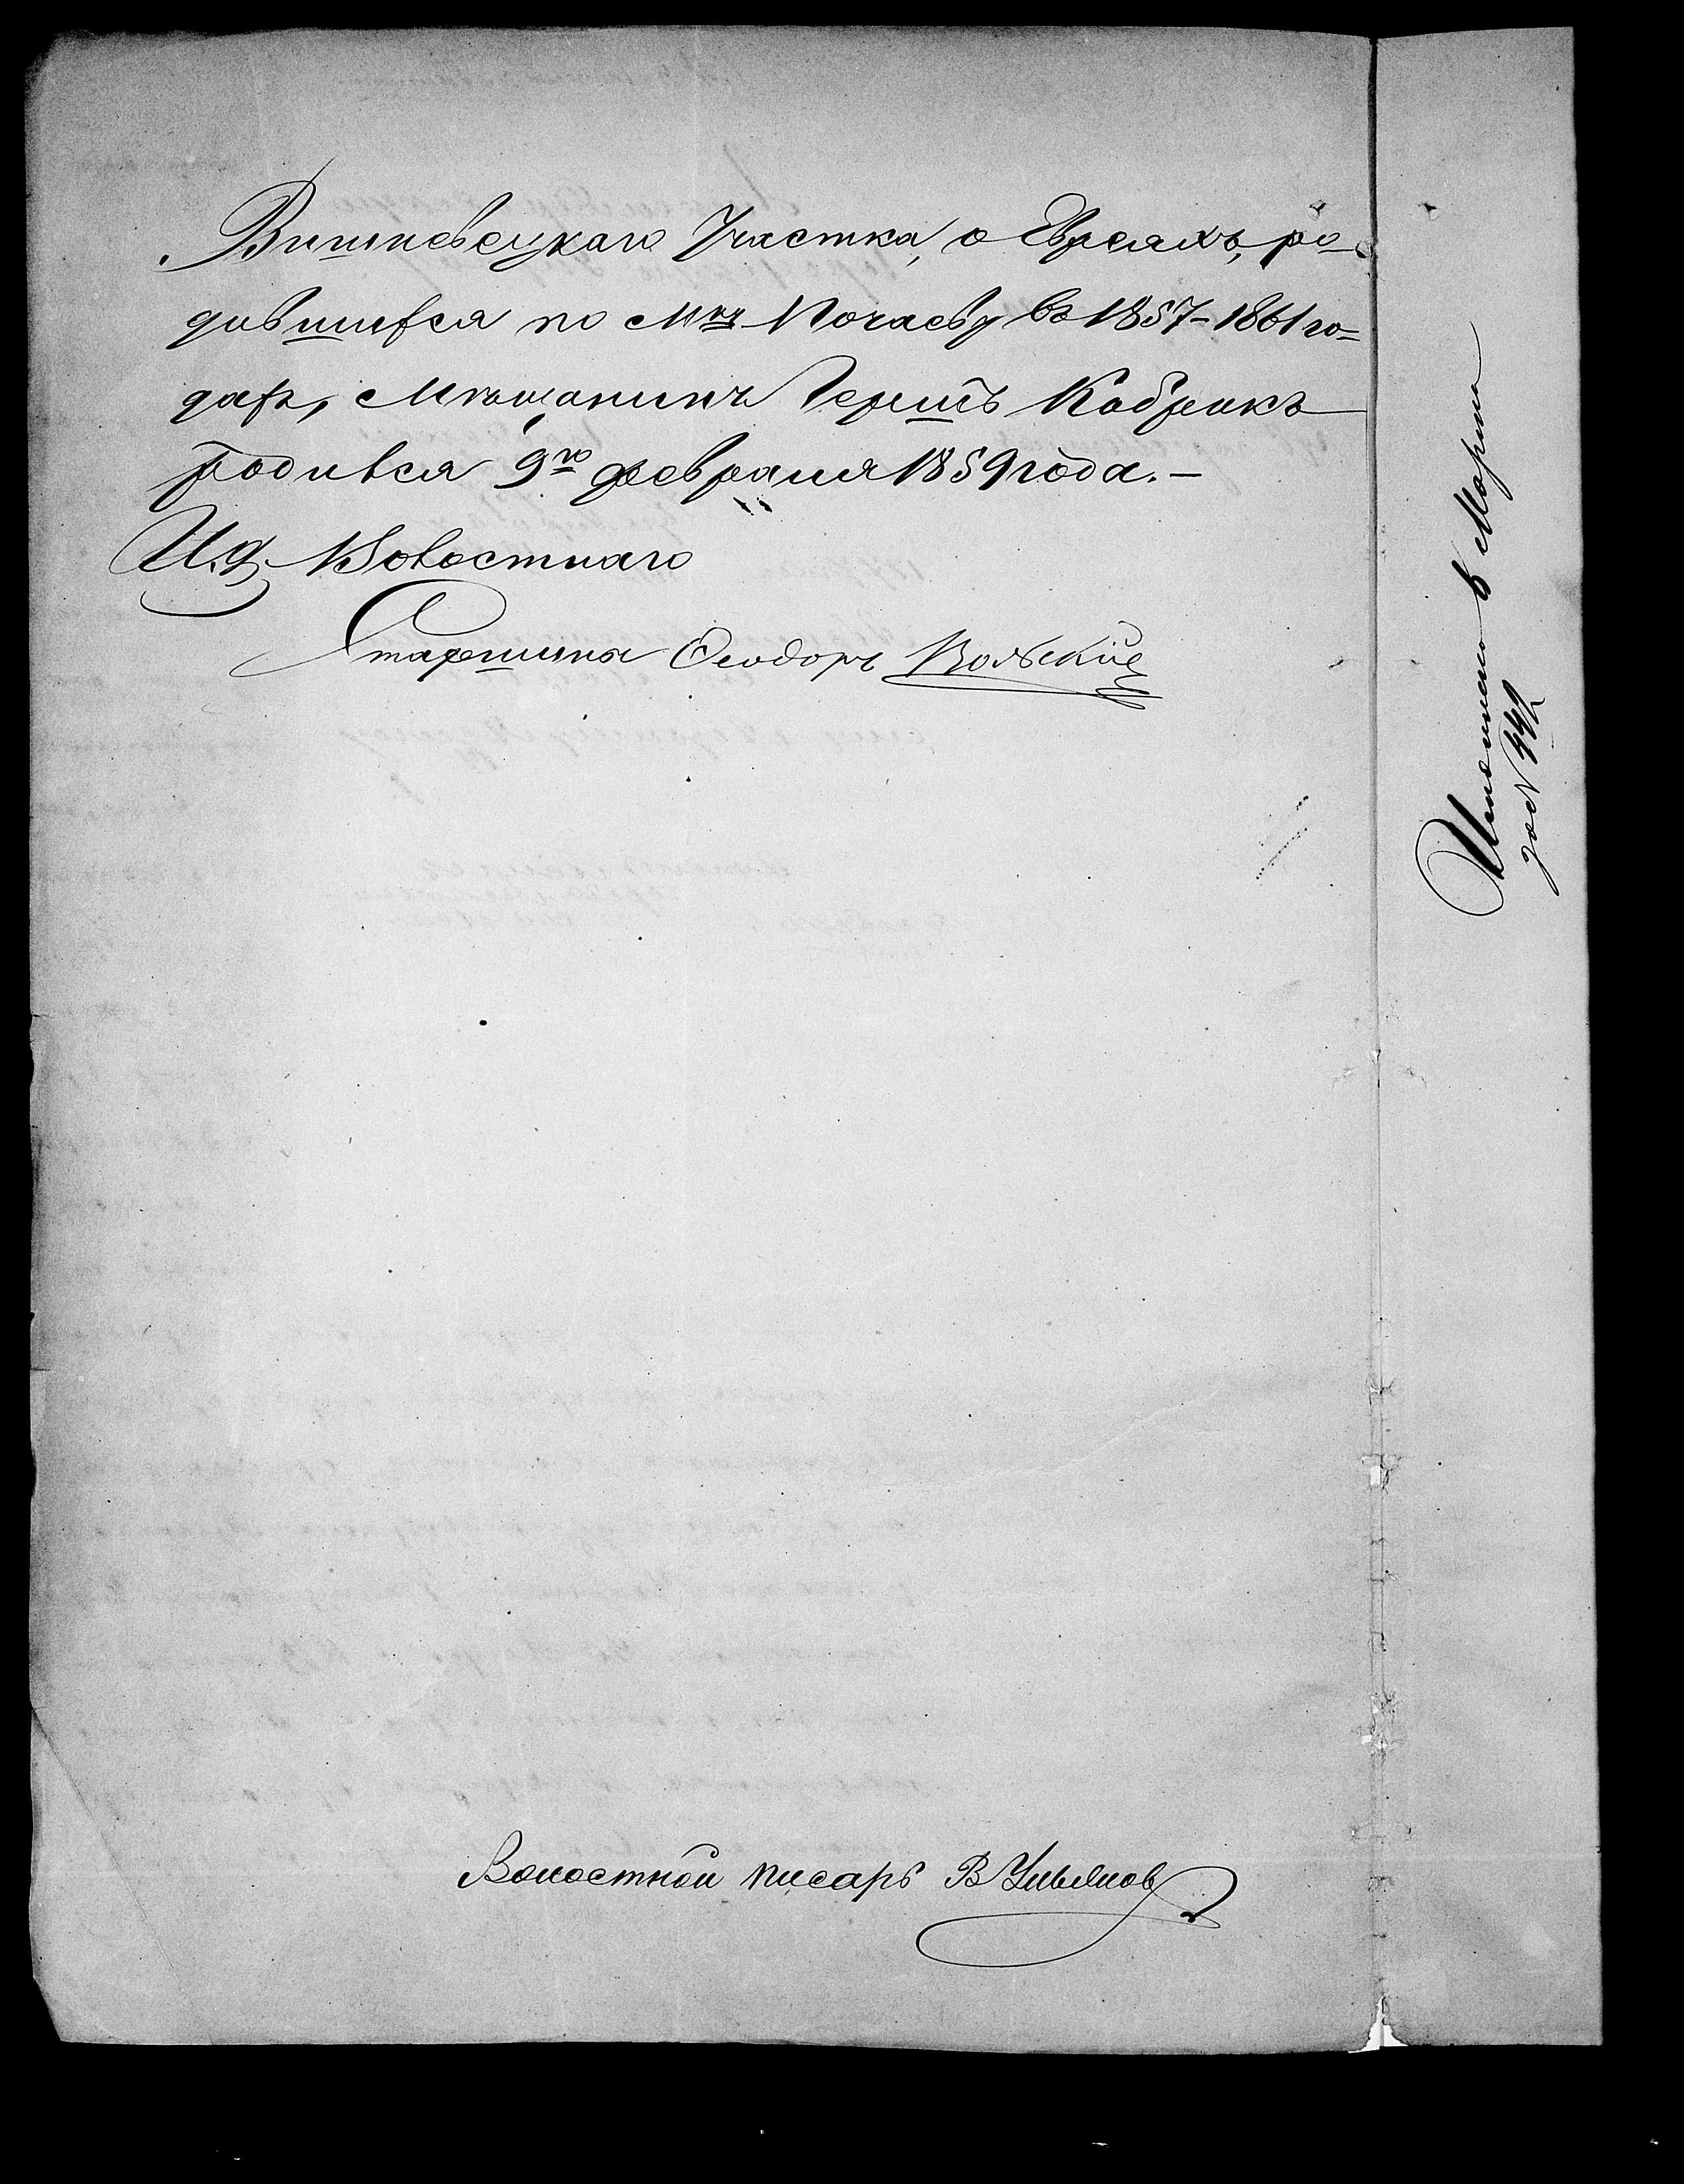 Вишневецкаго Участка, о Евреяхъ, ро-
дившихся по М-чку Почаеву въ 1857-1861 го-
дахъ, Мѣщанинъ Гершъ Кобрикъ
родился 9го февраля 1859 года. –
И. д. Волостнаго
Старшина Ѳеодоръ Вольскій
Волостной писарь В Ульянов
Исполнено 6 Марта
за № 442